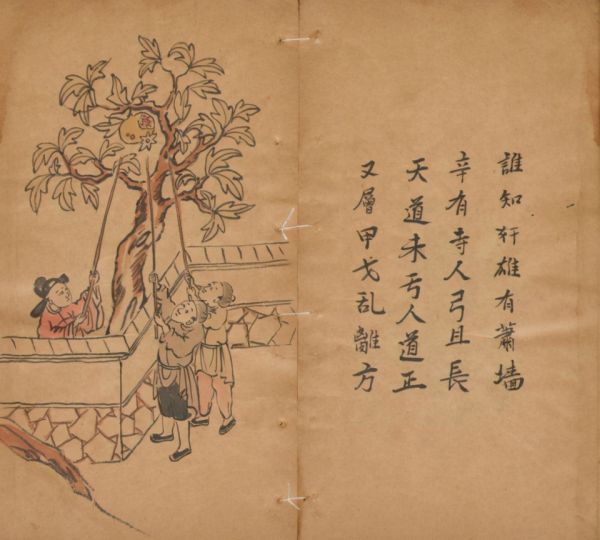 誰知奸雄有蕭墻
辛有寺人弓且長
天道未亏人道正
又層甲戈乱離方